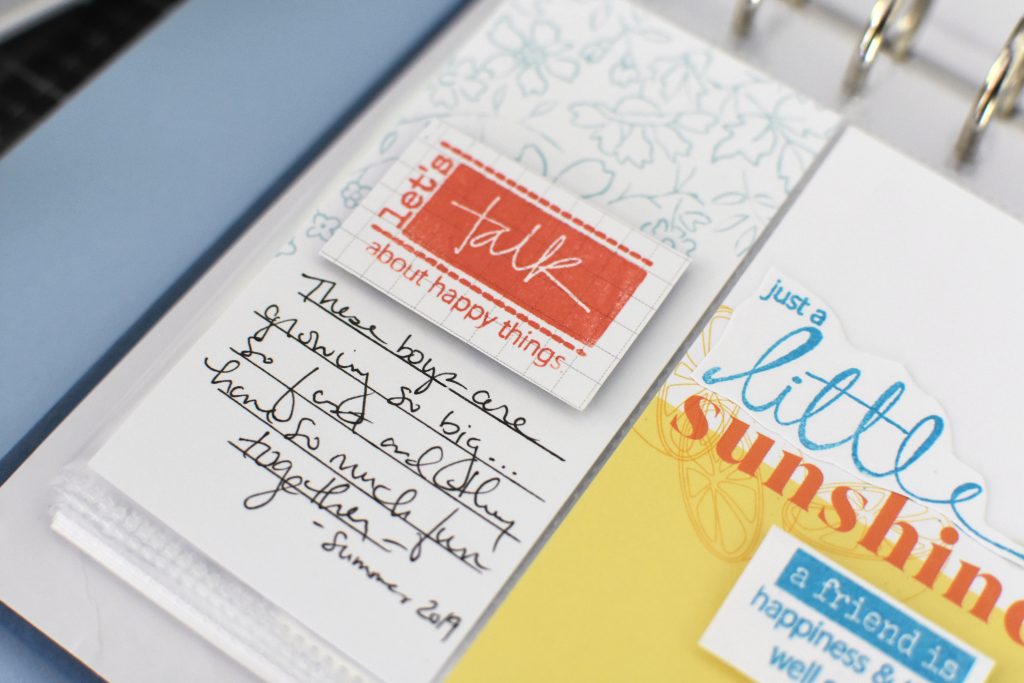 let's
talk
about happy things.
These boys are
growing so big...
so fast and they
have so much fun
together -
- summer 2019
just a
little
sunshine
a friend is
happiness &
well